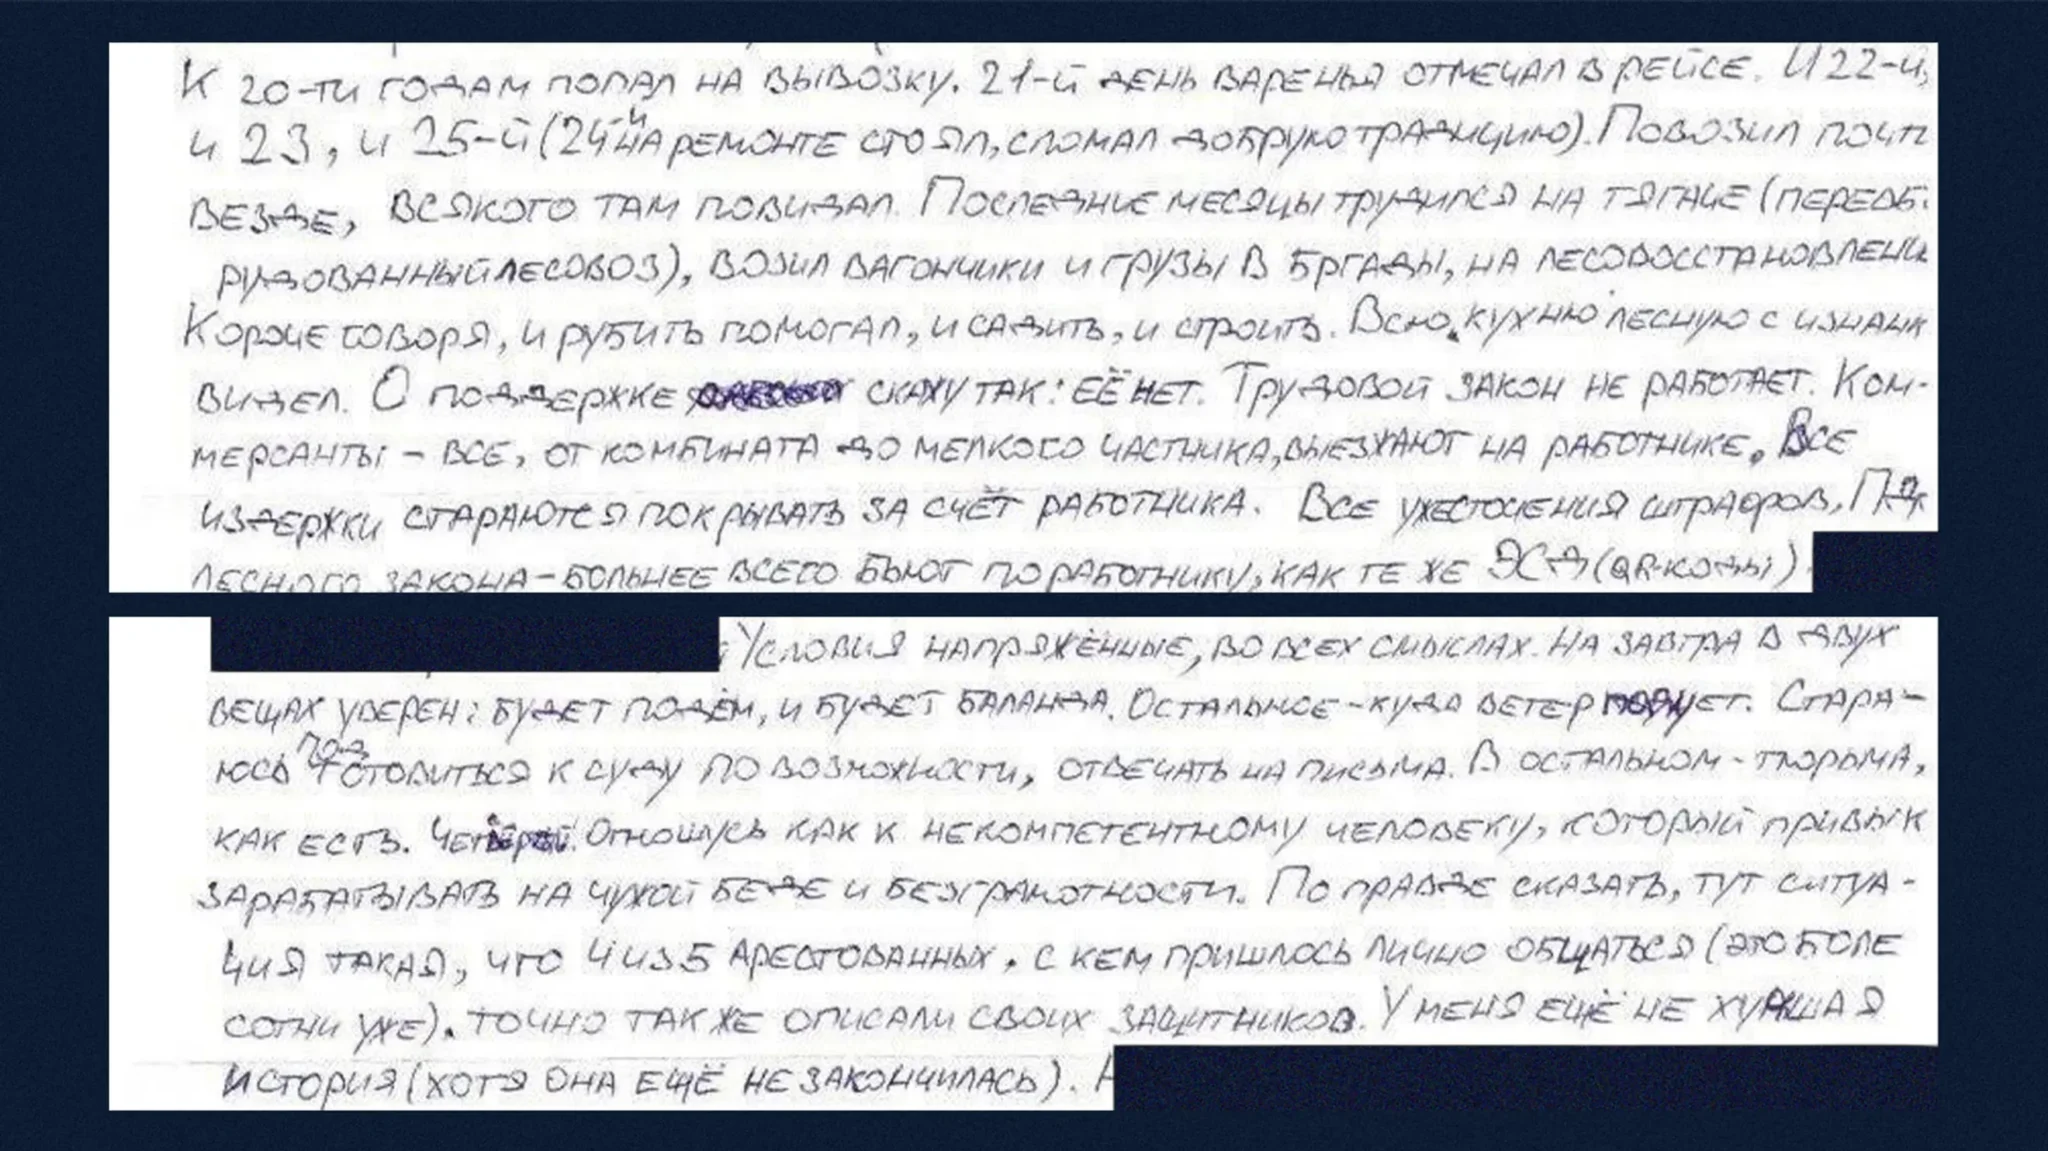 К 20-ти годам попал на вывозку. 21-й день варенья отмечал в рейсе. И 22-й,
и 23, и 25-й (24й на ремонте стоял, сломал добрую традицию). Повозил почт
везде, всякого там повидал. Последние месяцы трудился на тягаче (переоб.
рудованный лесовоз), возил вагончики и грузы в бргады, на лесовосстановлени
Короче говоря, и рубить помогал, и садить, и строить. Всю кухню лесную с изнанк
видел. О поддержке скажу так: её нет. Трудовой закон не работает. Ком-
мерсанты - все, от комбината до мелкого частника, выезжают на работнике. Все
издержки стараются покрывать за счёт работника. Все ужесточения штрафов,
лесного закона - больнее всего бьют по работнику, как те же ЭСД (QR-коды).
Условия напряжённые, во всех смыслах. На завтра в двух
вещах уверен: будет подъём, и будет баланда. Остальное - куда ветер подует. Стара-
юсь подготовиться к суду по возможности, отвечать на письма. В остальном - тюрьма,
как есть. Отношусь как к некомпетентному человеку, который привык
зарабатывать на чужой беде и безграмотности. По правде сказать, тут ситуа-
ция такая, что 4 из 5 арестованных, с кем пришлось лично общаться (это боле
сотни уже). точно так же описали своих защитников. У меня ещё не худшая
история (хотя она ещё не закончилась).